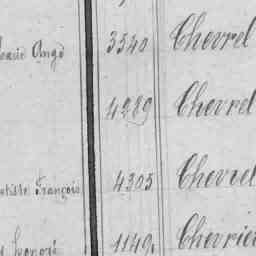 Ange 3340 Chevrel
4289 Chevrel
François 4305 Chevrel
Honoré 1149 Chevrier